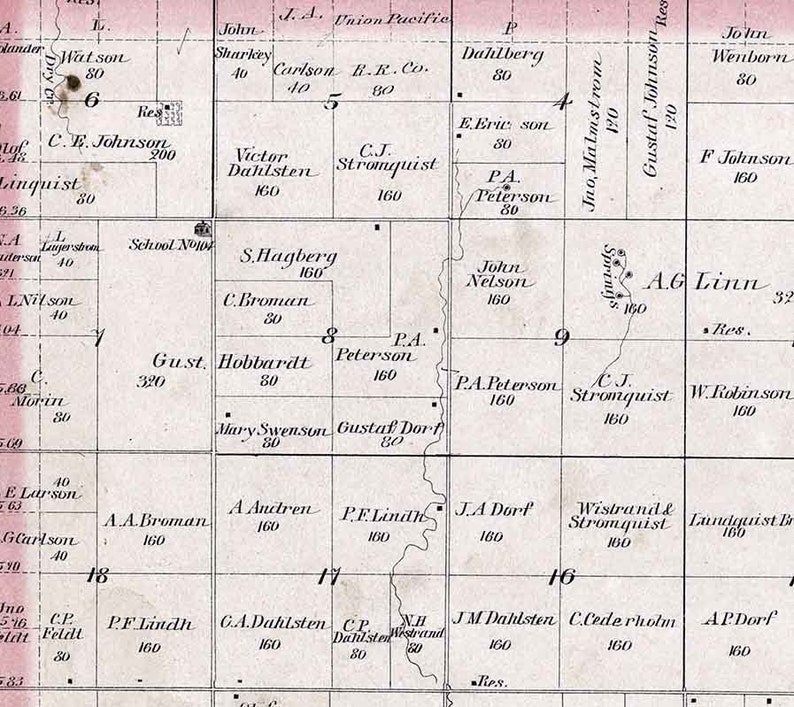 Res.
Res
A.
L.
John
J. A.
Union Pacific
P
John
olander
Watson
80
Sharkey
40
Carlson
40
R. R. Co.
80
Dahlberg
80
Wenborn
80
Dry Cr.
6
5
4
Jno, Malmstrom
120
Gustaf Johnson
120
5.61
Res
C. E. Johnson
200
Olof
5.43
Linquist
80
6.36
Victor
Dahlsten
160
C. J.
Stromquist
160
E. Eric son
80
P. A.
Peterson
80
F Johnson
160
N.A
L
Lagerstrom
40
School No 104
S. Hagberg
160
John
Nelson
160
Springs
160
A. G Linn
32
anderson
521
L Nilson
40
C. Broman
80
7
8
9
Res.
Gust.
320
Hobbardt
80
P. A.
Peterson
160
P. A. Peterson
160
C. J.
Stromquist
160
W. Robinson
160
C.
Morin
80
5.69
Mary Swenson
80
Gustaf Dorf
80
40
E Larson
5 63
A. A. Broman
160
A Andren
160
P. F. Lindh
160
J. A Dorf
160
Wistrand &
Stromquist
160
Lundquist Br
160
G Carlson
40
18
17
16
Jno
5.46
Feldt
C. P.
Feldt
80
P. F. Lindh
160
C. A. Dahlsten
160
C P
Dahlsten
80
N. H
Westrand
80
J M Dahlsten
160
C. Cederholm
160
A P Dorf
160
5.83
Res.